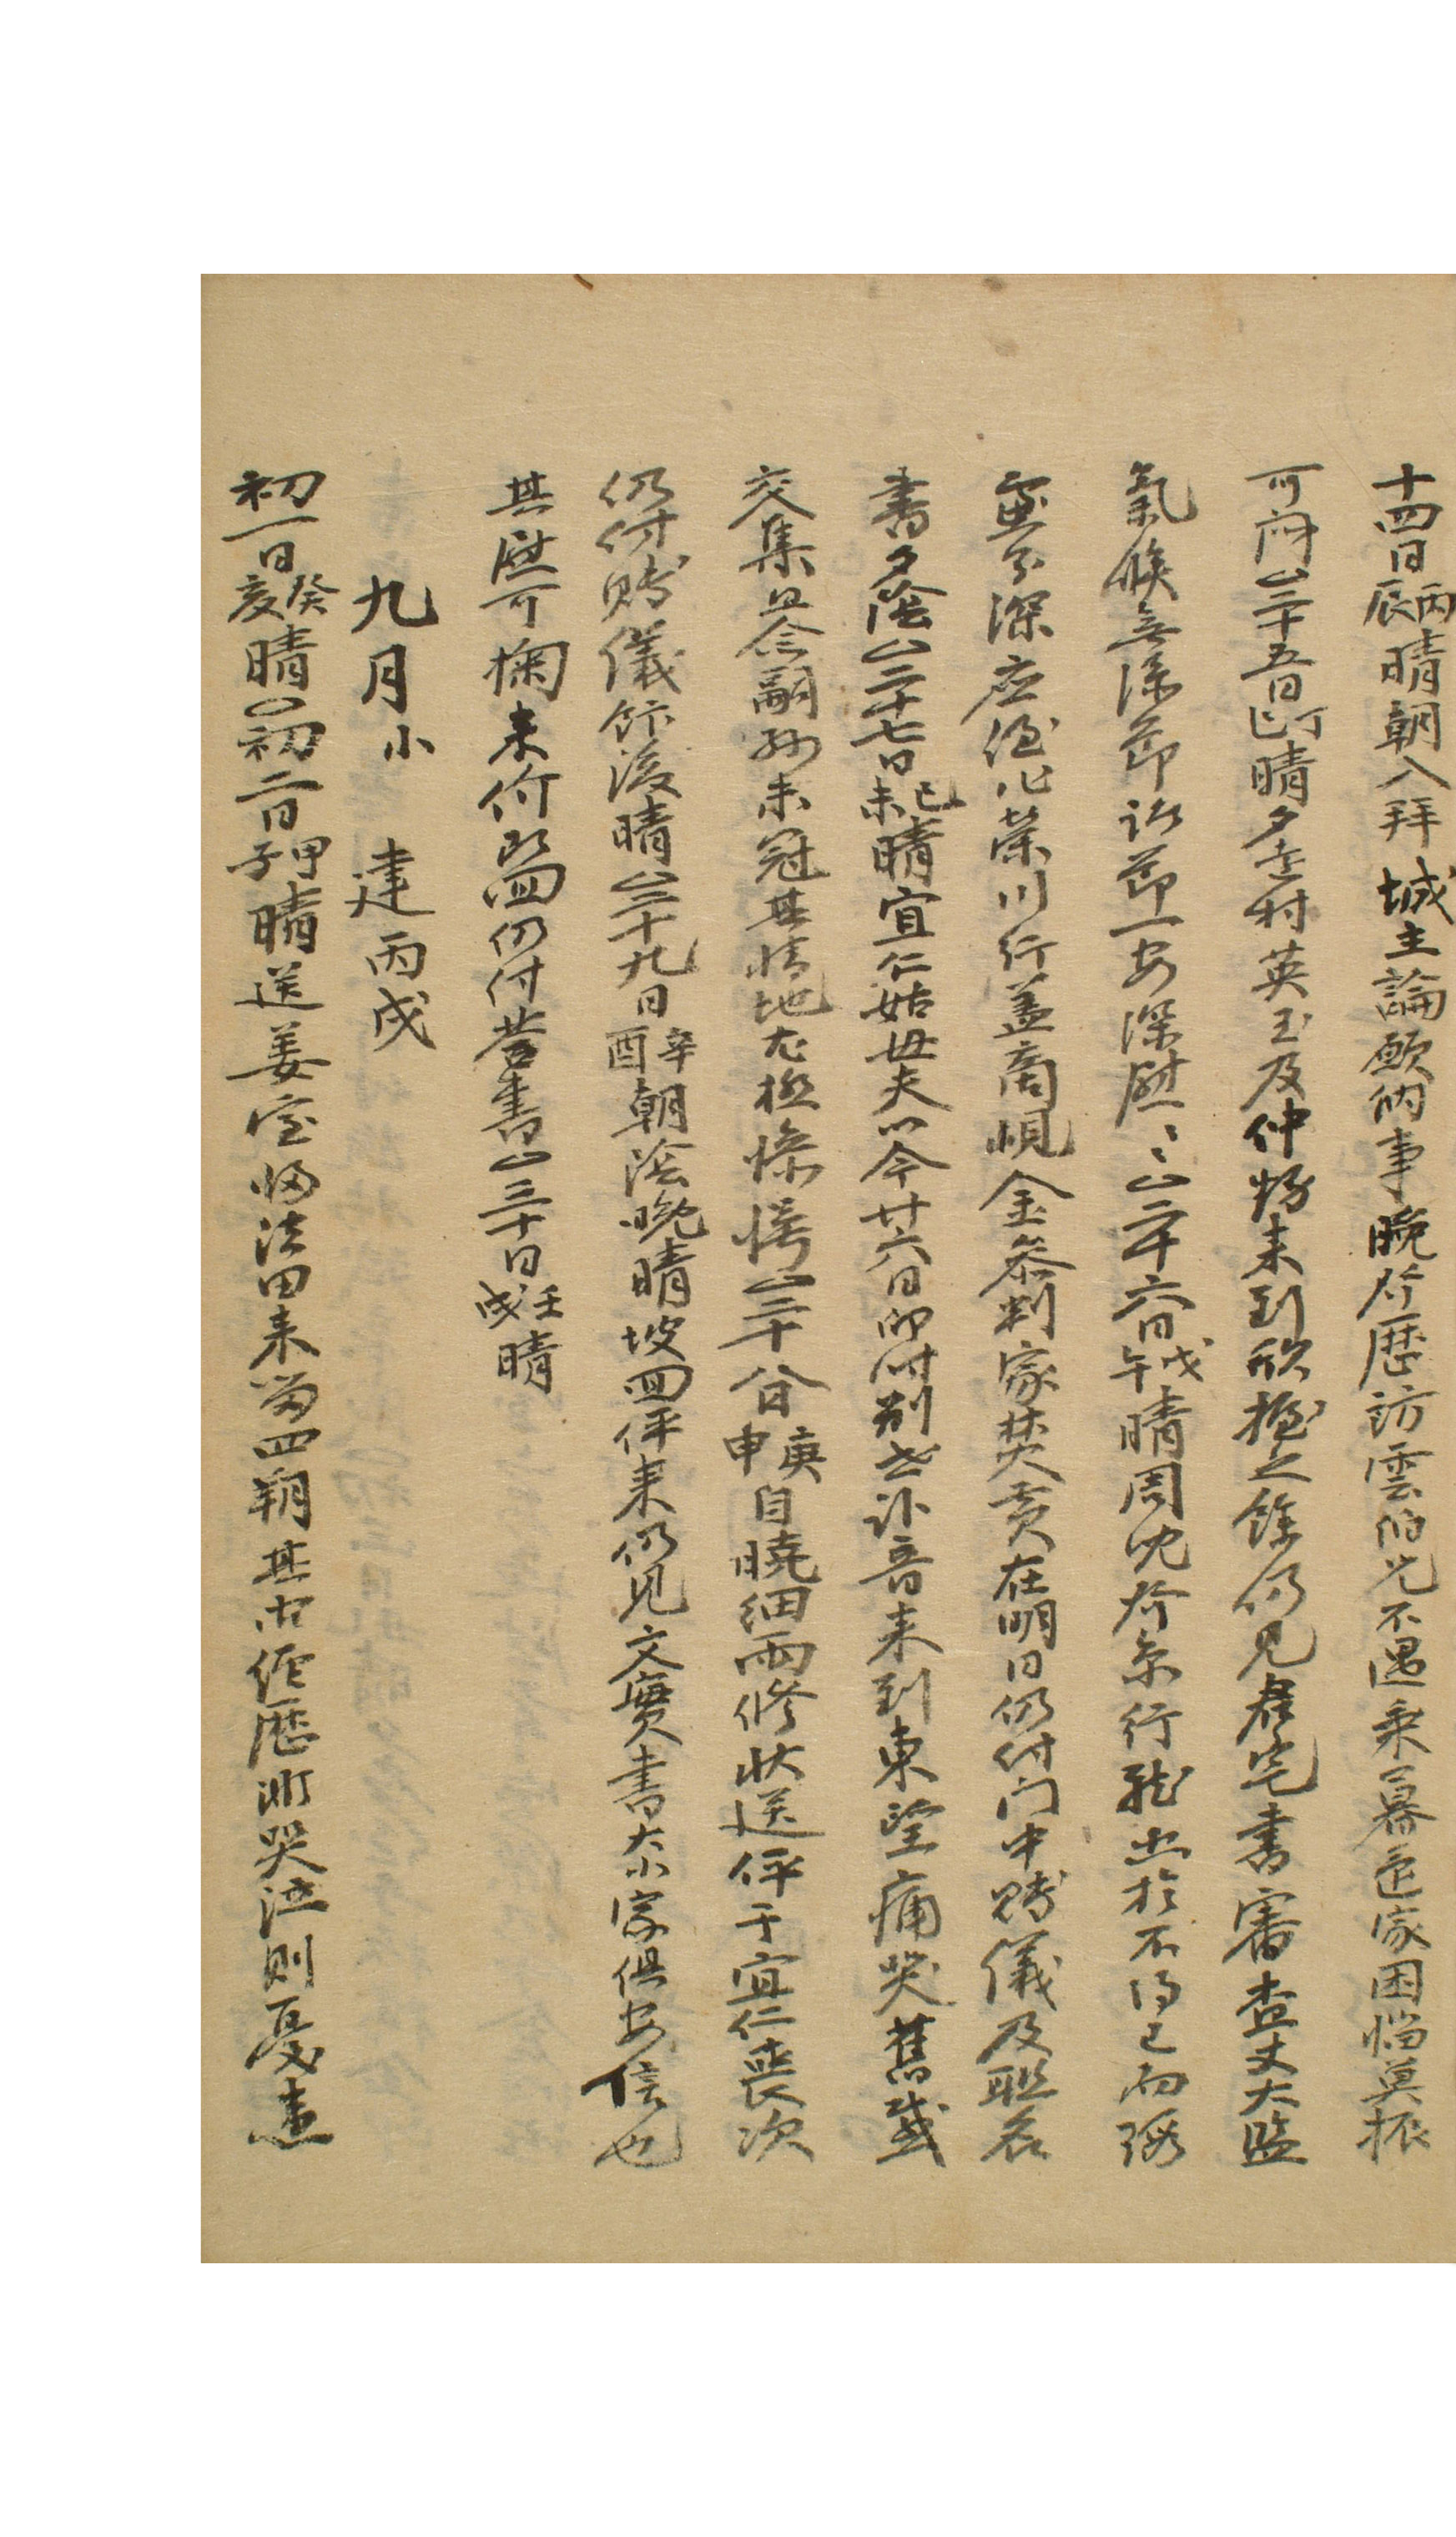 十四日丙辰晴朝入拜城主論飲納事晚后歷訪雲伯兄不遇乘暮還家困惱莫振
可悶○二十五日丁巳晴夕丟村英玉及仲粉来到欣握之餘仍見君宅書審查丈大監
氣候無添節諸節一安深慰々○二十六日戊午晴周沈 京行 出於不得已而
深 榮川行盖商 金參判家焚黃在明日仍付门中賻儀及聯名
書夕陰○二十七日己未晴宜仁姑母夫以今廿六日卯時別世訃音来到東望痛哭舊感
交集且念嗣孫未冠其情地尤極慘愕○二十八日庚申自曉細雨修狀送伻于宜仁喪次
仍付賻儀 後晴○二十九日辛酉朝陰晚晴坡回伻来仍见文實書大小家俱安信也
其慰可掬来价 仍付答書○三十日壬戌晴
九月小 建丙戌
初一日癸亥晴○初二日甲子晴送姜室婦法田来留四朔其中經歷 哭泣則憂患